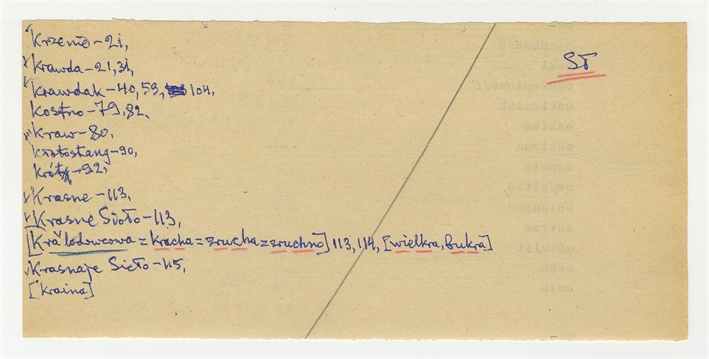 Krzemo-21,
ST
Krawda-21,31,
Krawdak-40,59, 104,
Kostno-79,82,
Kraw-80,
Krótostang-90,
Krasne-113,
Krasne Sioło-113,
[Kra lodowcowa = Kracha = zrucha = zruchno] 113,114, [wielkra, bukra]
Krasnaje Sieło-115,
[Kraina]